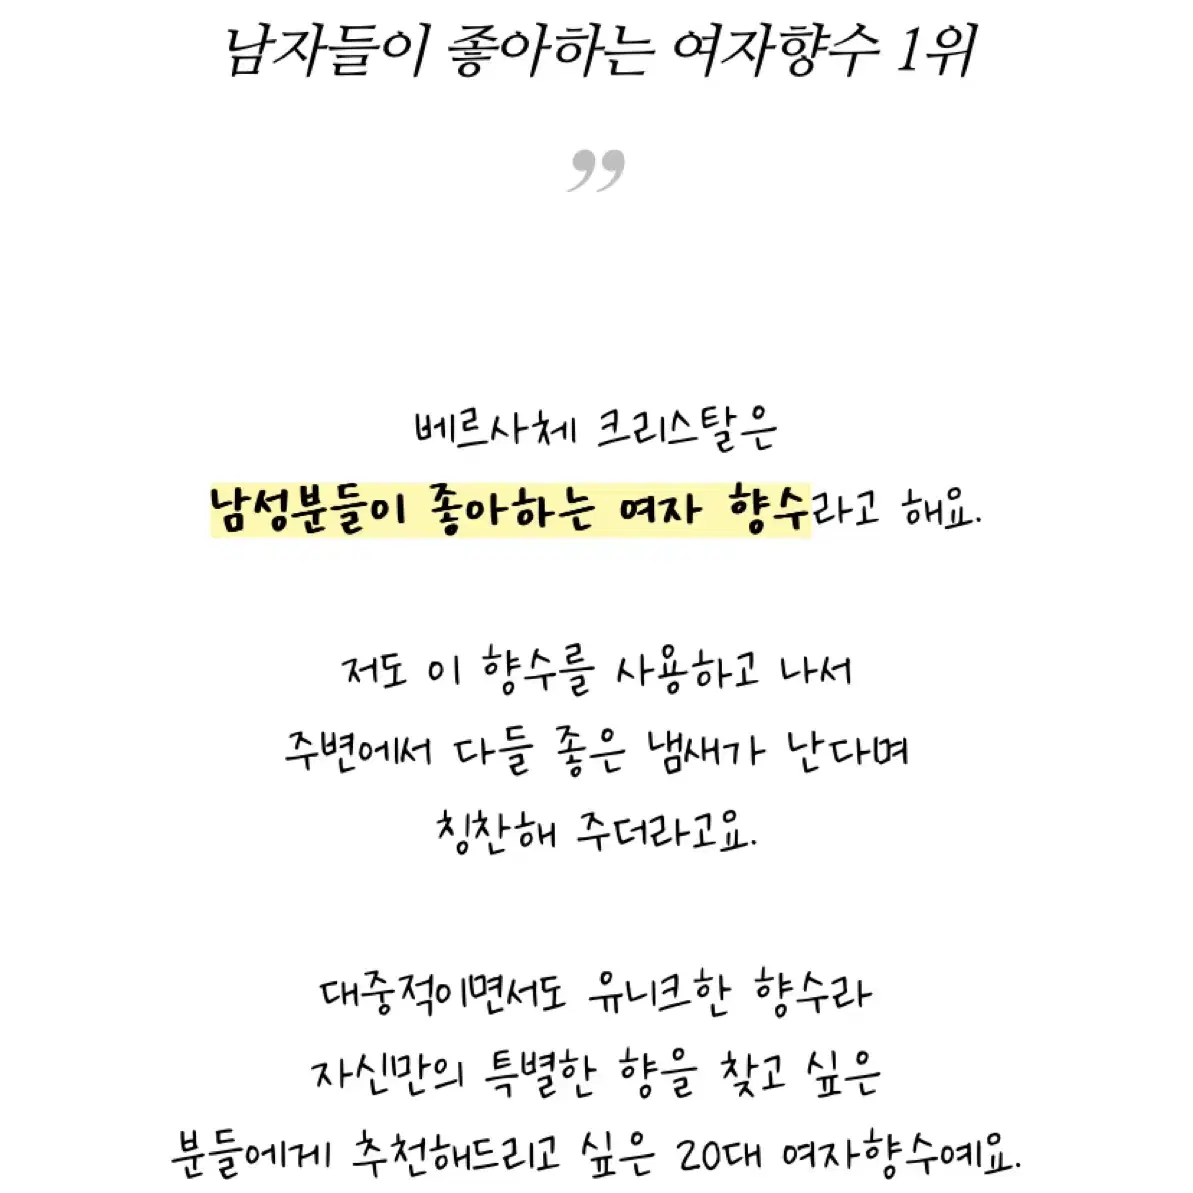 남자들이 좋아하는 여자향수 1위
”
베르사체 크리스탈은
남성분들이 좋아하는 여자 향수라고 해요.
저도 이 향수를 사용하고 나서
주변에서 다들 좋은 냄새가 난다며
칭찬해 주더라고요.
대중적이면서도 유니크한 향수라
자신만의 특별한 향을 찾고 싶은
분들에게 추천해드리고 싶은 20대 여자향수예요.